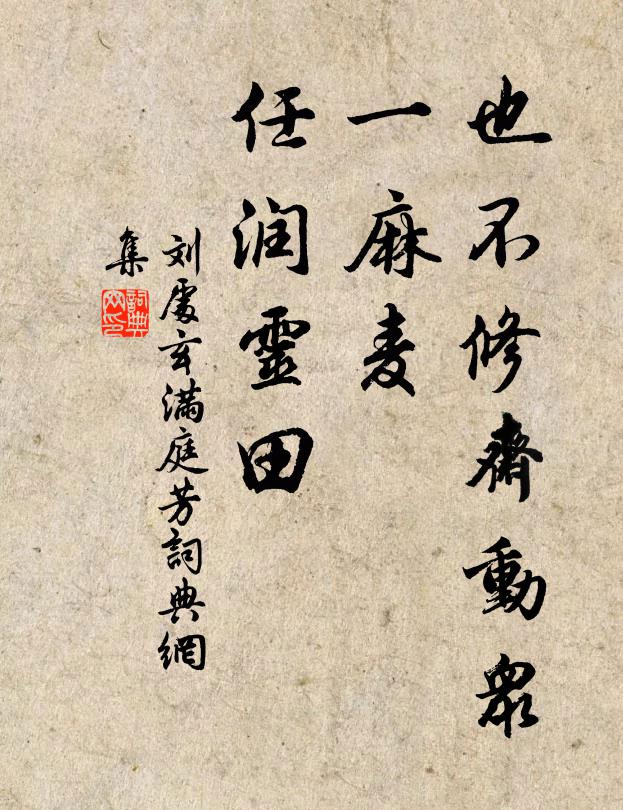 也不修齋動眾
一麻麦
任润靈田
刘處玄满庭芳詞典網
集
詞典网印